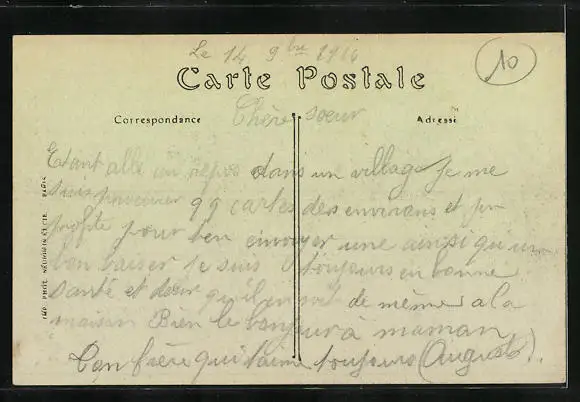 Le 14 9bre 1916
10
Carte Postale
Correspondance
Adresse
Chère soeur
Etant allé au repos dans un village je me
suis procurer 99 cartes des environs et j'en
profite pour t'en envoyer une ainsi qu'un
bon baiser je suis toujours en bonne
santé et désir qu'il en soit de même a la
maison Bien le bonjour à maman
Ton frère qui t'aime toujours (Auguste).
IMP. PHOT. NEURDEIN ET CIE. PARIS